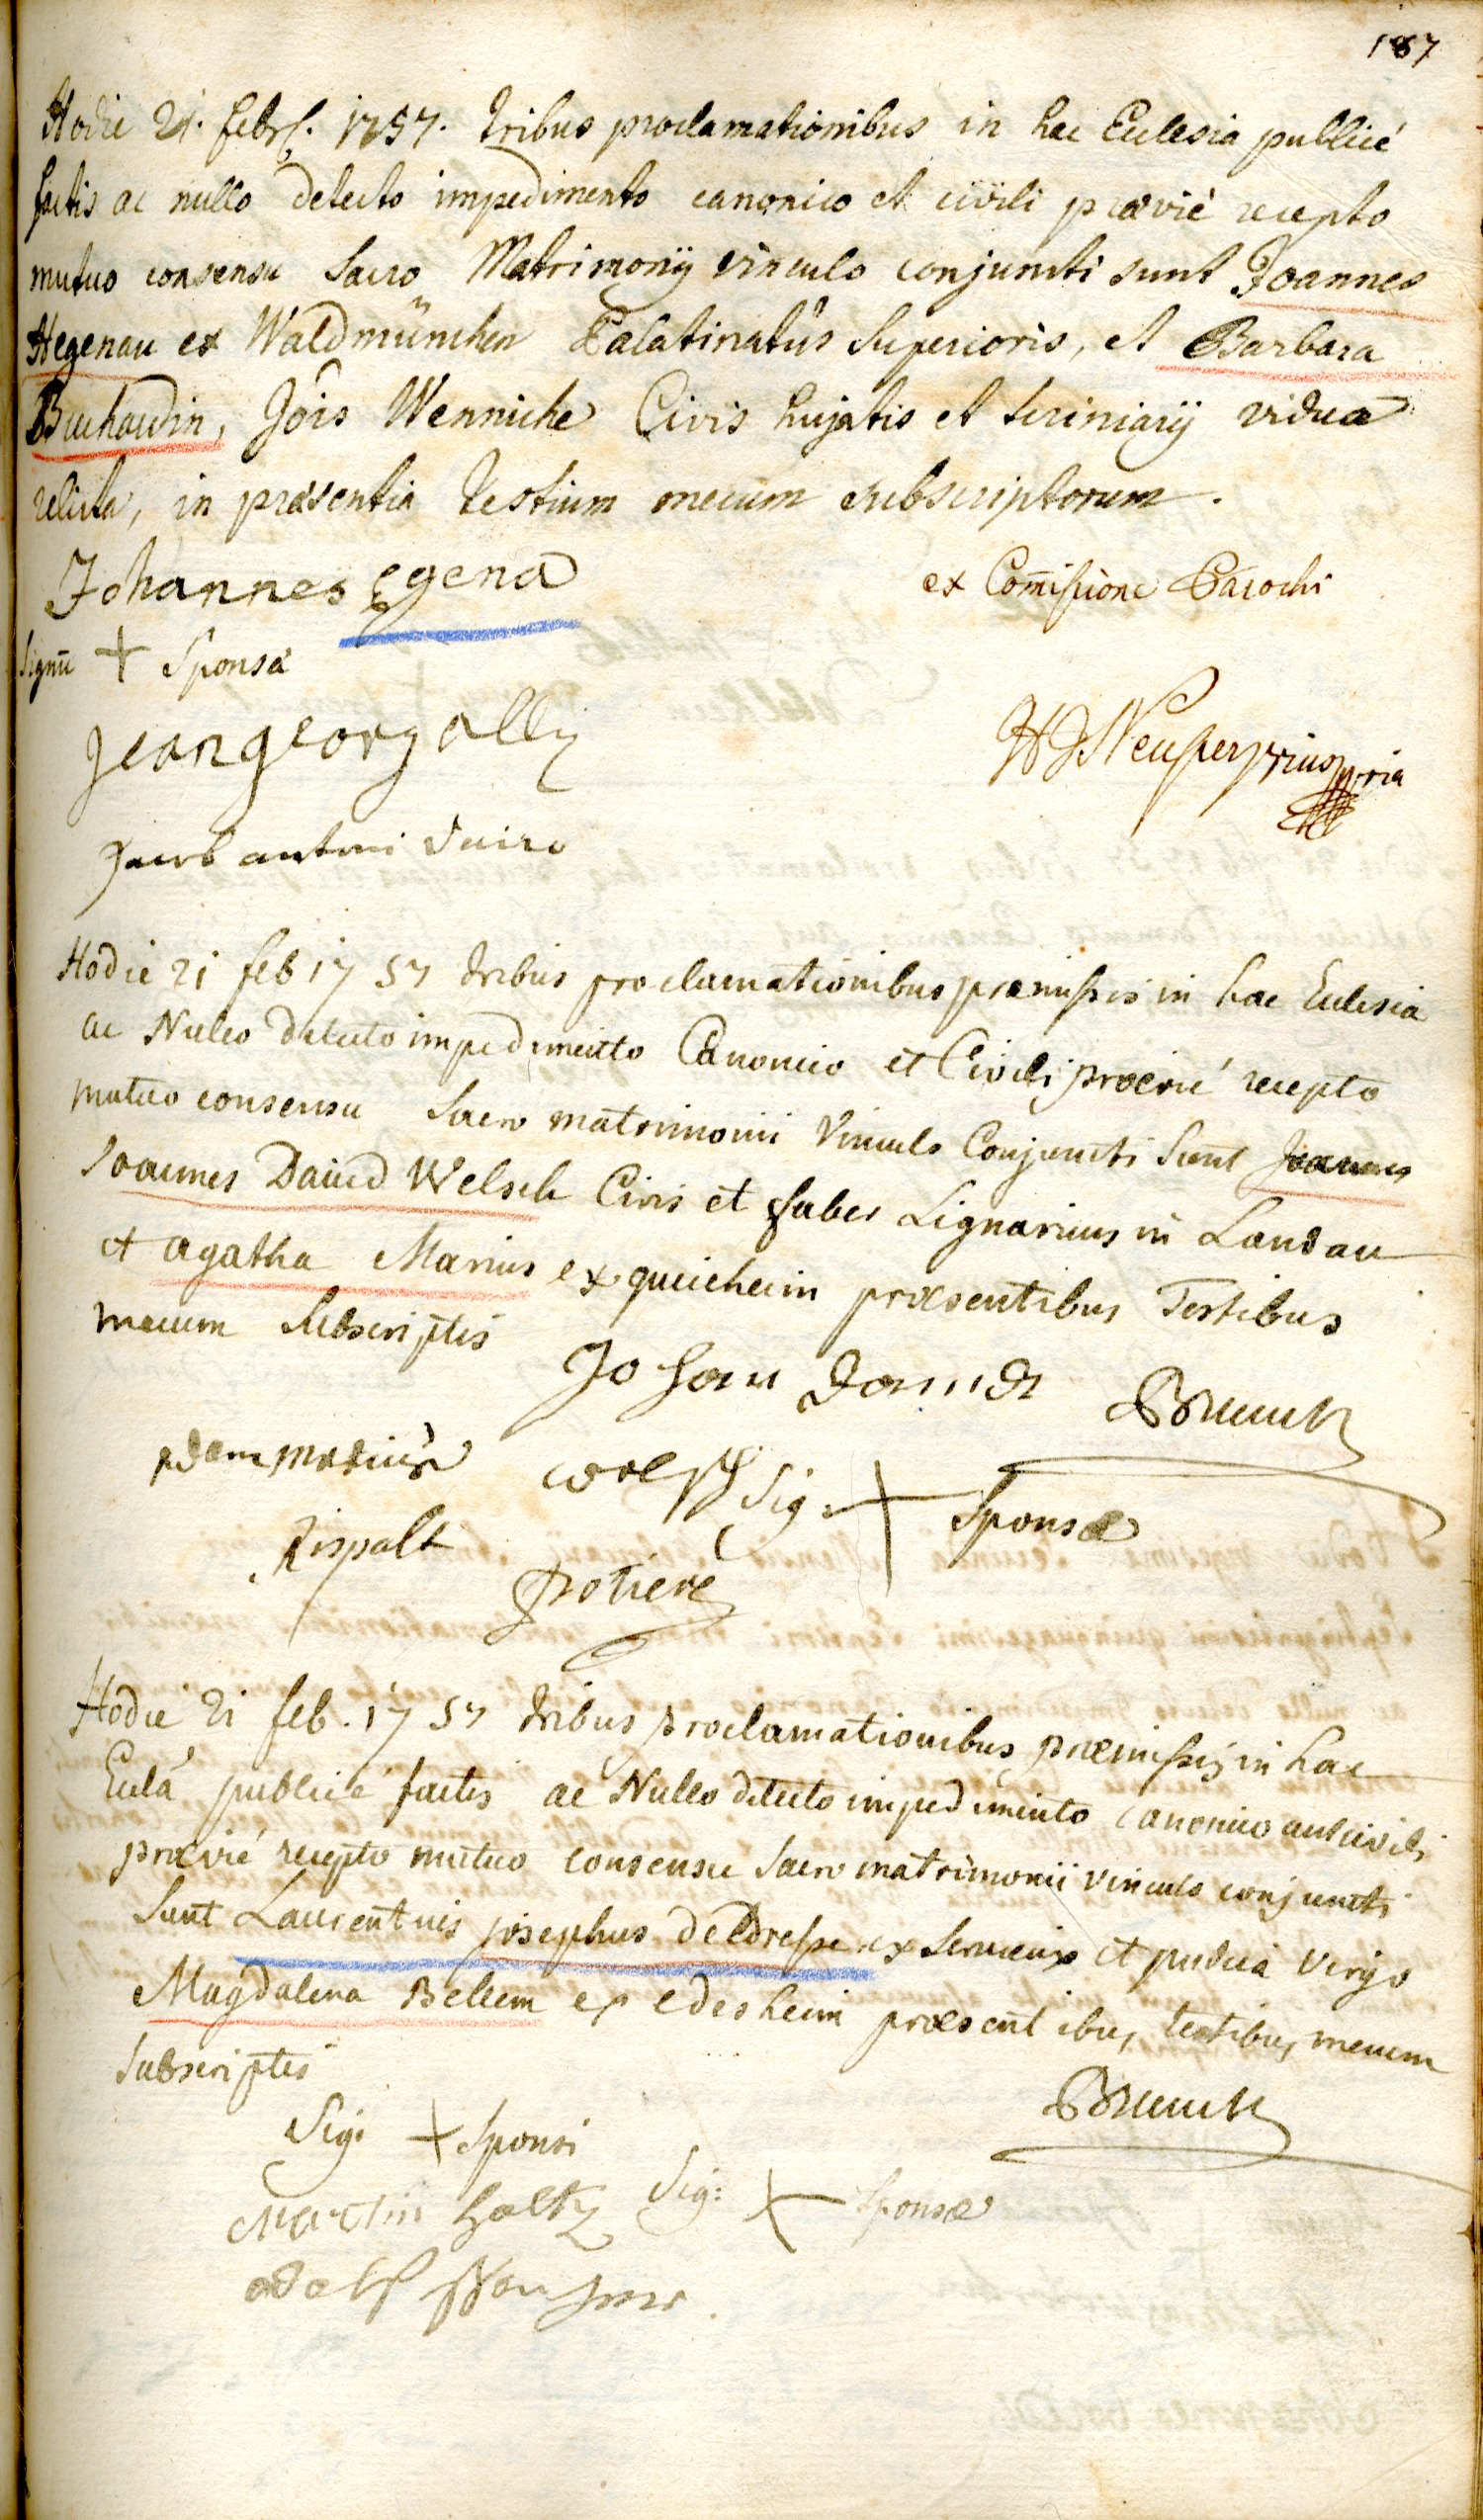 187
Hodie 21. febr. 1757. tribus proclamationibus in hac Ecclesia publicè
factis ac nullo detecto impedimento canonico et civili prævié recepto
mutuo consensu Sacro Matrimonÿ vinculo conjuncti sunt Joannes
Hegenau ex Waldmünchen Palatinatûs Superioris, et Barbara
Jôis Wenniche Civis hujatis et scriniarÿ vidua
relicta, in præsentia testium mecum subscriptorum.
Johannes egena
ex Com̄issione Parochi
Signū + Sponsæ
Jean georg olly
Jacob antoni
Hodie 21 feb 1757 tribus proclamationibus præmissis in hac Ecclesia
ac Nullo detecto impedimento Canonico et Civili prævié recepto
mutuo consensu Sacro matrimonii Vinculo Conjuncti Sunt Joannes
Joannes David Welsch Civis et faber Lignarius in Landau
et agatha Marius ex queicheim præsentibus Testibus
mecum Subscriptis
Johan Davidt
Brunck
adam marius
welsch Sig. + Sponsæ
Rispalt
potiere
Hodie 21 feb. 1757 tribus proclamationibus præmissis in hac
Eccla publicé factis ac Nullo detecto impedimento canonico aut civili
prævié recepto mutuo consensu Sacro matrimonii vinculo conjuncti
Sunt Laurentius josephus deldresse ex et pudica virgo
Magdalena Bellem ex edesheim præsentibus testibus mecum
Subscriptis
Brunck
Sig. + Sponsi
Martin holtz Sig: + Sponsæ
adolf